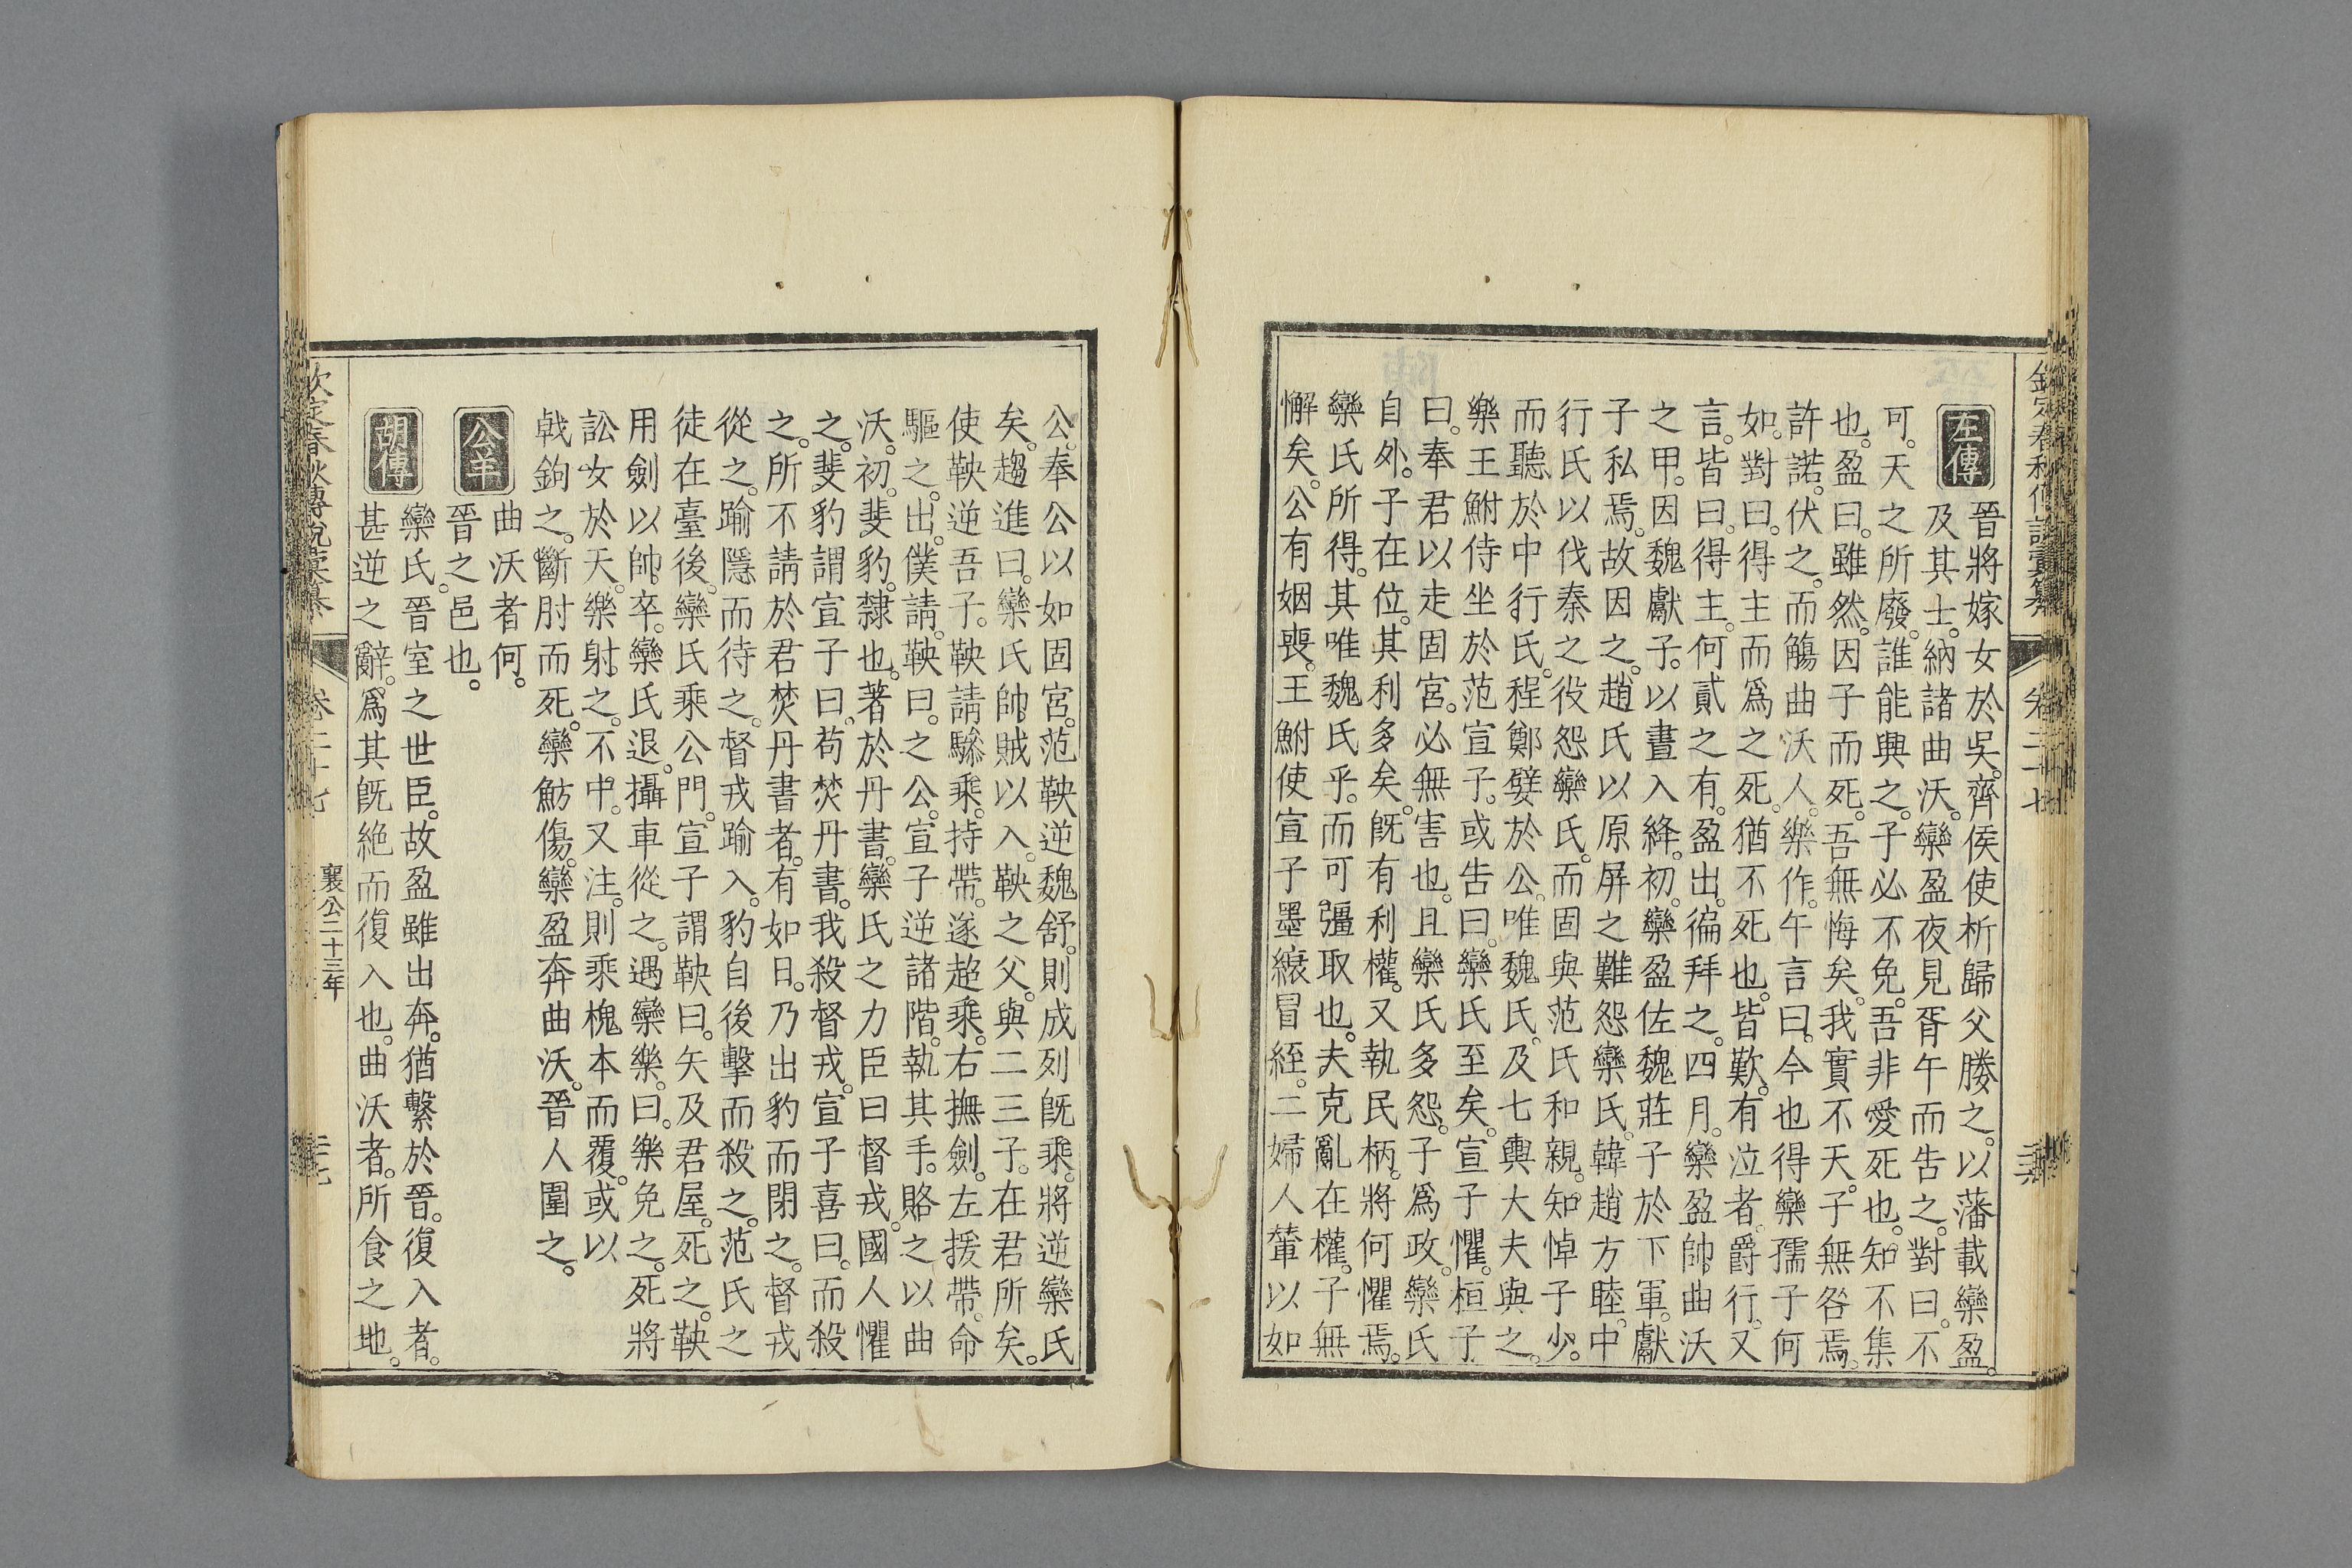 欽定春秋傳說彙纂 卷二十七
左傳 晉將嫁女於吳。齊侯使析歸父媵之。以藩載欒盈。
及其士。納諸曲沃。欒盈夜見胥午而告之。對曰。不
可。天之所廢。誰能興之。子必不免。吾非愛死也。知不集
也。盈曰。雖然。因子而死。吾無悔矣。我實不天。子無咎焉。
許諾。伏之。而觴曲沃人。樂作。午言曰。今也得欒孺子何
如。對曰。得主而爲之死。猶不死也。皆歎。有泣者。爵行。又
言。皆曰。得主。何貳之有。盈出。徧拜之。四月。欒盈帥曲沃
之甲。因魏獻子。以晝入絳。初。欒盈佐魏莊子於下軍。獻
子私焉。故因之。趙氏以原屏之難怨欒氏。韓趙方睦。中
行氏以伐秦之役怨欒氏。而固與范氏和親。知悼子少。
而聽於中行氏。程鄭嬖於公。唯魏氏。及七輿大夫與之。
樂王鮒侍坐於范宣子。或告曰。欒氏至矣。宣子懼。桓子
曰。奉君以走固宮。必無害也。且欒氏多怨。子爲政。欒氏
自外。子在位。其利多矣。既有利權。又執民柄。將何懼焉。
欒氏所得。其唯魏氏乎。而可彊取也。夫克亂在權。子無
懈矣。公有姻喪。王鮒使宣子墨縗冒絰。二婦人輦以如
公。奉公以如固宮。范鞅逆魏舒。則成列既乘。將逆欒氏
矣。趨進曰。欒氏帥賊以入。鞅之父。與二三子。在君所矣。
使鞅逆吾子。鞅請驂乘。持帶。遂超乘。右撫劍。左援帶。命
驅之。出。僕請。鞅曰。之公。宣子逆諸階。執其手。賂之以曲
沃。初。斐豹。隸也。著於丹書。欒氏之力臣曰督戎。國人懼
之。斐豹謂宣子曰。苟焚丹書。我殺督戎。宣子喜曰。而殺
之。所不請於君焚丹書者。有如日。乃出豹而閉之。督戎
從之。踰隱而待之。督戎踰入。豹自後擊而殺之。范氏之
徒在臺後。欒氏乘公門。宣子謂鞅曰。矢及君屋。死之。鞅
用劍以帥卒。欒氏退。攝車從之。遇欒樂。曰。樂免之。死將
訟女於天。樂射之。不中。又注。則乘槐本而覆。或以
戟鉤之。斷肘而死。欒魴傷。欒盈奔曲沃。晉人圍之。
公羊 曲沃者何。
晉之邑也。
胡傳 欒氏。晉室之世臣。故盈雖出奔。猶繫於晉。復入者。
甚逆之辭。爲其既絕而復入也。曲沃者。所食之地。
欽定春秋傳說彙纂 卷二十七 襄公二十三年